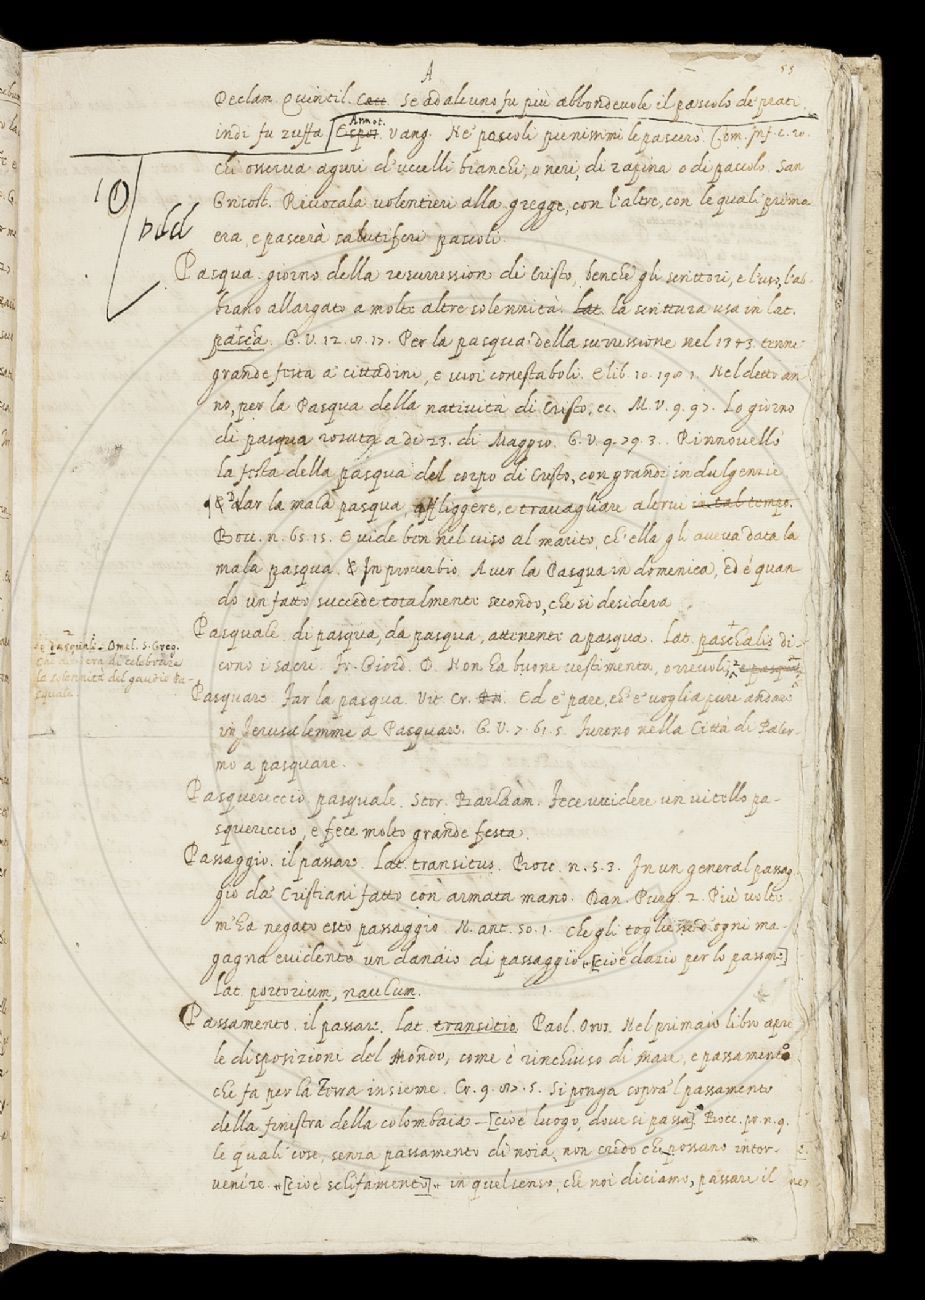 A
55
Declam. Quintil. Se ad alcuno fu più abbondevole il pascolo de' prati
indi fu zuffa Espos. Annot. Vang. Ne' pascoli pienissimi le pascero. Com. Inf. c. 20.
chi osserva aguri d'uccelli bianchi, o neri, di rapina o di pascolo. San
Grisost. Rivocala volentieri alla gregge, con l'altre, con le quali prima
era, e pascerà salutiferi pascoli.
Pasqua. giorno della resurression di Cristo, benchè gli scrittori, e l'uso, l'ab-
biano allargato a molte altre solennità. Lat. la scrittura usa in lat.
pascha. G. V. 12. 8. 17. Per la pasqua della surressione nel 1343. tenne
grande festa a' cittadini, e suoi conestaboli. E lib. 10. 198 1. Nel detto an-
no, per la Pasqua della natività di Cristo, ec. M. V. 9. 97. Lo giorno
di pasqua rosata a dì 23. di Maggio. G. V. 9. 79. 3. Rinnovello
la festa della pasqua del corpo di Cristo, con grandi indulgenzie
& Dar la mala pasqua, affliggere, e travagliare altrui in tal tempo.
Bocc. n. 65. 15. E vide ben nel viso al marito, ch'ella gli aveva data la
mala pasqua. & In proverbio. Aver la Pasqua in domenica, ed è quan-
do un fatto succede totalmente secondo, che si desidera
Pasquale. di pasqua, da pasqua, attenente a pasqua. Lat. paschalis di-
cono i sacri. Fr. Giord. D. Non ha buone vestimenta, orrevoli, e pasquali
di celebrare
la solennità del gaudio pa-
squale
Pasquare. Far la pasqua. Vit. Cr. Ed e' pare, ch'e' voglia pure andare
in Jerusalemme a Pasquare. G. V. 7. 61. 5. Furono nella Città di Paler-
mo a pasquare.
Pasquereccio. pasquale. Stor. Barlaàm. Fece uccidere un vitello pa-
squereccio, e fece molto grande festa.
Passaggio. il passare. Lat. transitus. Bocc. n. 5. 3. In un general passag-
gio da' Cristiani fatto con armata mano. Dan. Purg. 2. Più volte
m'ha negato esto passaggio. N. ant. 50. 1. che gli togliesse d'ogni ma-
gagna evidente un danaio di passaggio [cioè dazio per lo passare]
Lat. portorium, naulum.
Passamento. il passare. Lat. transitio. Paol. Oros. Nel primaio libro apre
le disposizioni del Mondo, come è rinchiuso di Mare, e passamento
che fa per la Terra insieme. Cr. 9. 87. 5. Si ponga sopra 'l passamento
della finestra della colombaia - [cioè luogo, dove si passa] Bocc. pr. n. 9.
le quali cose, senza passamento di noia, non credo che possano inter-
venire. [cioè schifamento] in quel senso, che noi diciamo, passare il